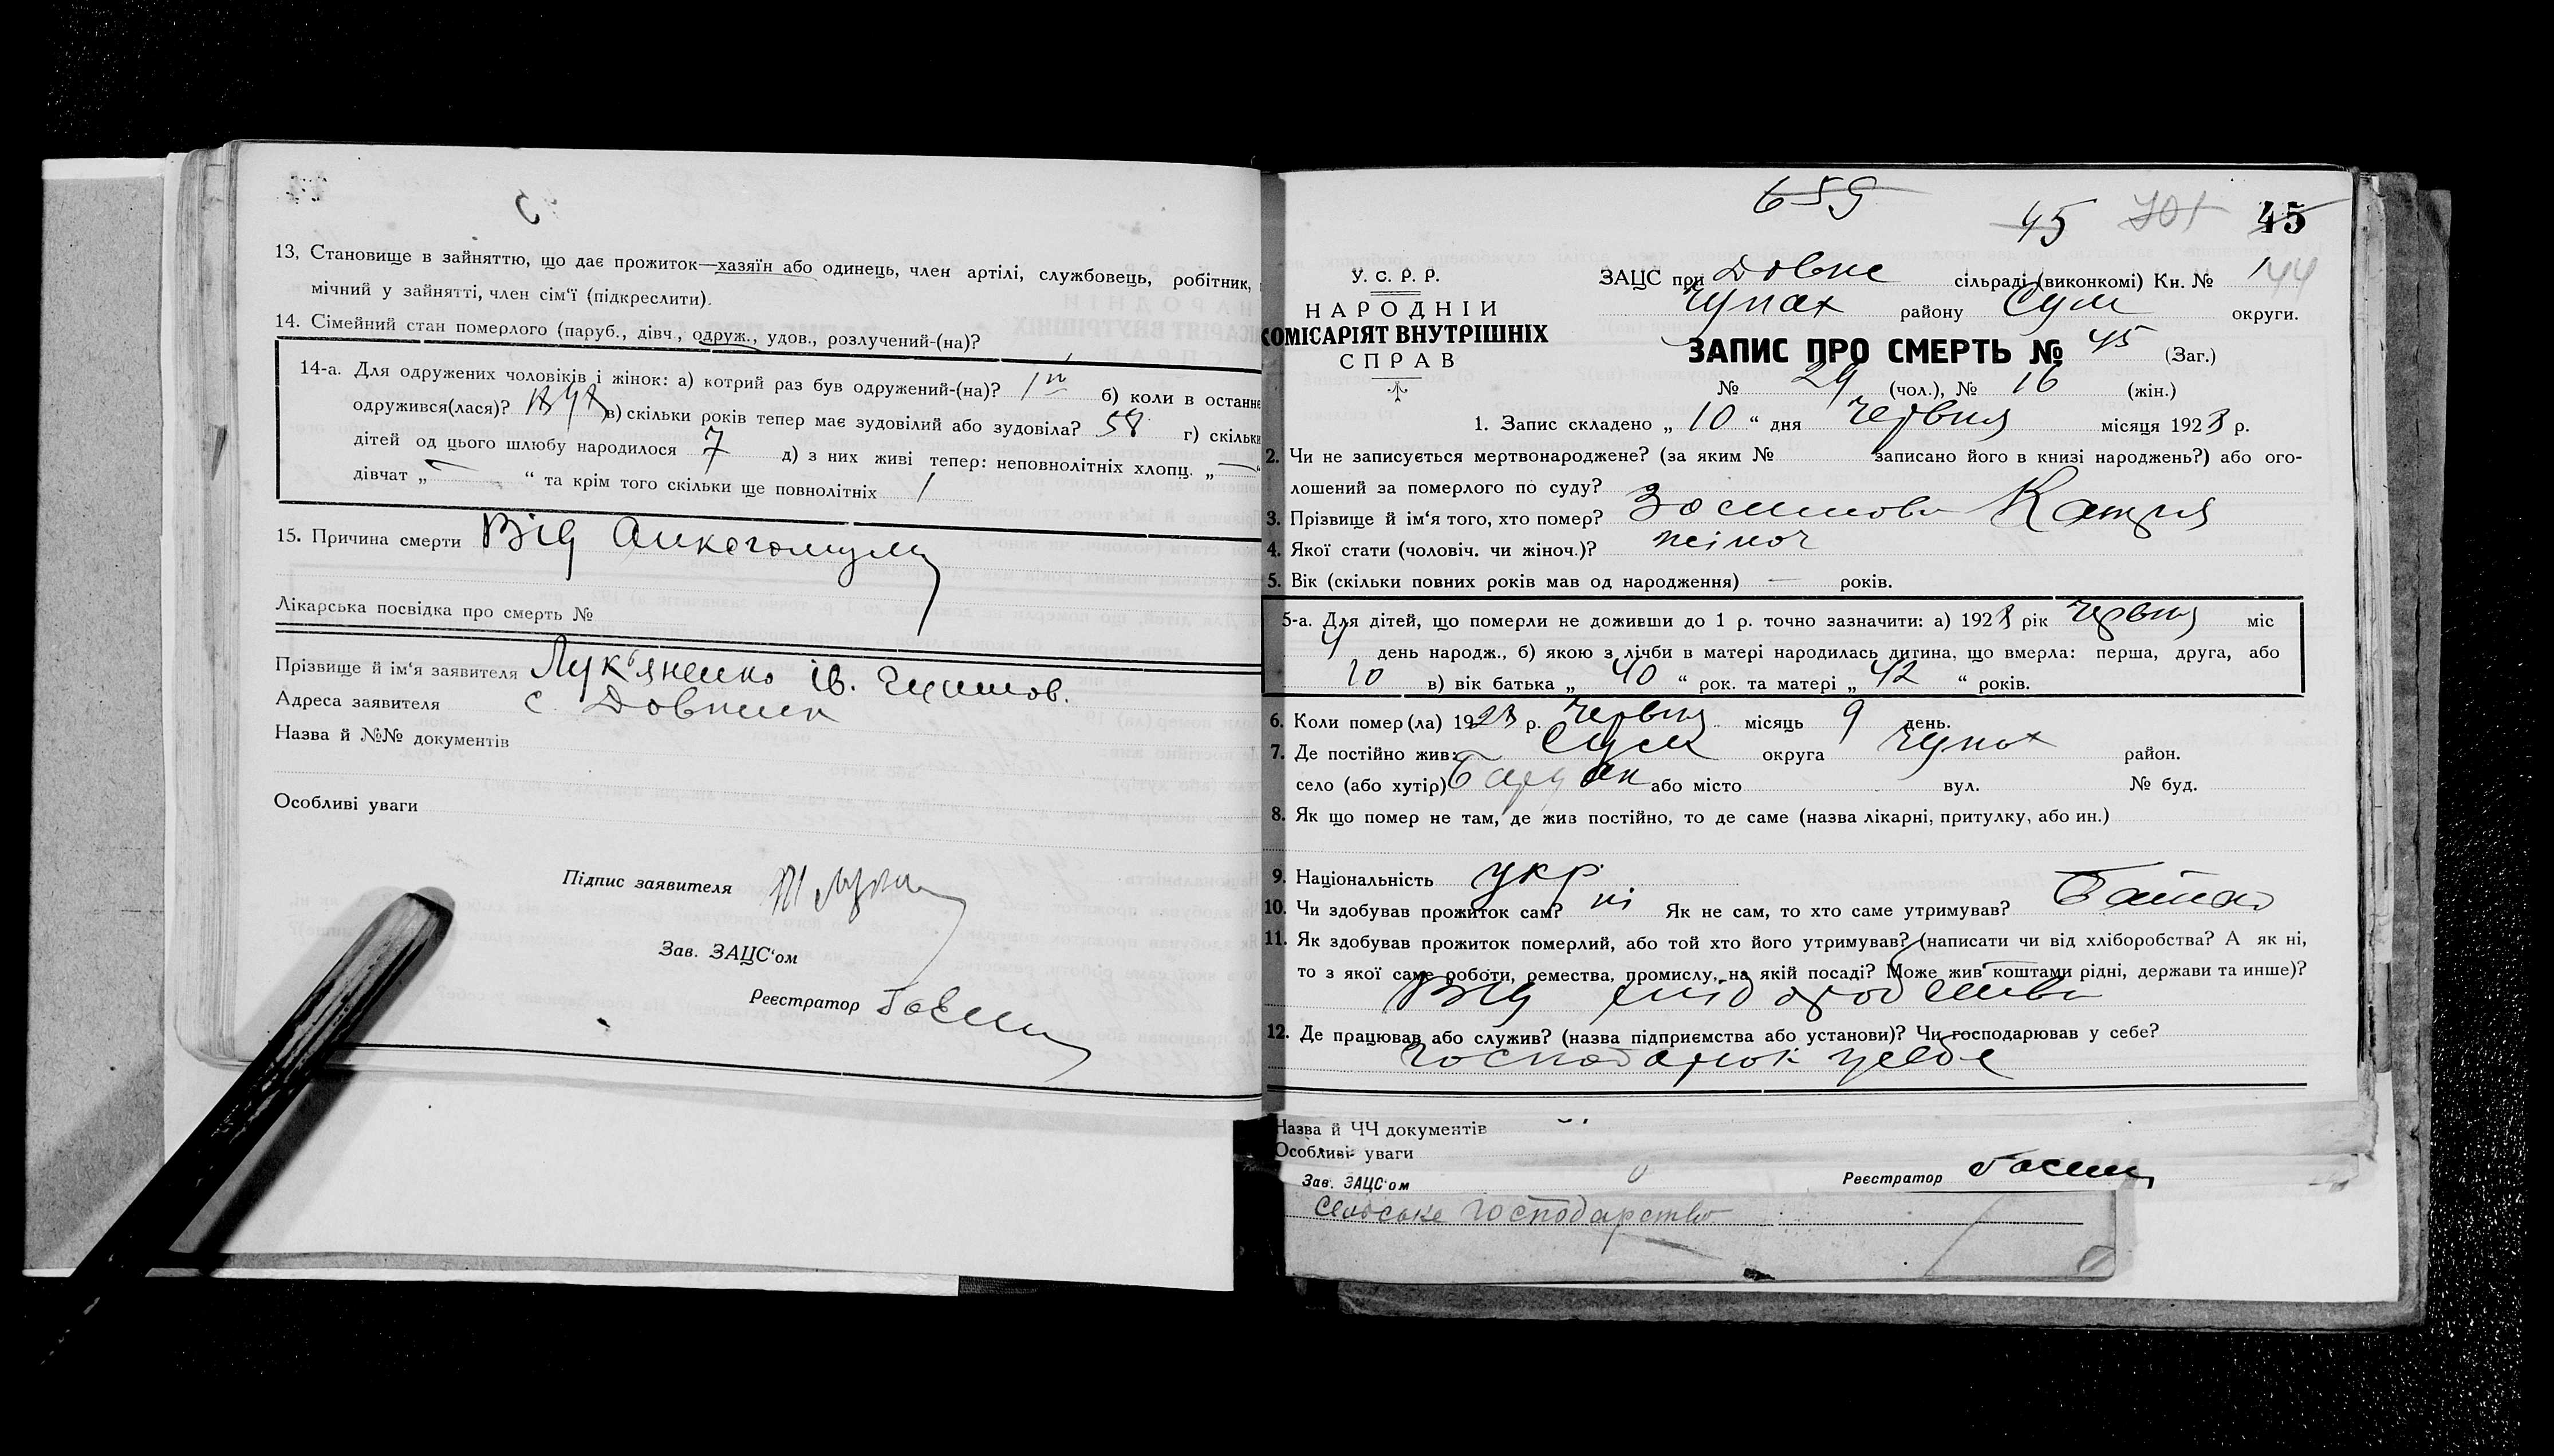 13, Становище в зайняттю, що дає прожиток—хазяїн або одинець, член артілі, службовець, робітник,
мічний у зайнятті, член сім'ї (підкреслити).
14. Сімейний стан померлого (паруб., дівч., одруж., удов., розлучений-(на)?
14-а. Для одружених чоловіків і жінок: а) котрий раз був одружений-(на)? 1й б) коли в останнє
одружився(лася)? в) скільки років тепер має зудовілий або зудовіла? 58 г) скільки
дітей од цього шлюбу народилося 7 д) з них живі тепер: неповнолітніх хлопц. „ — "
дівчат „ — " та крім того скільки ще повнолітніх 1
15. Причина смерти Від
Лікарська посвідка про смерть №
Прізвище й ім'я заявителя Лук'яненко Ів.
Адреса заявителя с.
Назва й №№ документів
Особливі уваги
Підпис заявителя
Зав. ЗАЦС'ом
Реєстратор
659
45 701 45
У. С. Р. Р.
НАРОДНІЙ
КОМІСАРІЯТ ВНУТРІШНІХ
СПРАВ
ЗАЦС при Довже сільраді (виконкомі) Кн. № 1 44
Чупах району Сум округи.
ЗАПИС ПРО СМЕРТЬ № 45 (Заг.)
№ 29 (чол.), № 16 (жін.)
1. Запис складено „ 10 " дня червня місяця 1928 р.
2. Чи не записується мертвонароджене? (за яким № записано його в книзі народжень?) або ого-
лошений за померлого по суду?
3. Прізвище й ім'я того, хто помер? Катря
4. Якої стати (чоловіч. чи жіноч.)? жіноч
5. Вік (скільки повних років мав од народження) — років.
5-а. Для дітей, що померли не доживши до 1 р. точно зазначити: а) 1928 рік червня міс
4 день народж., б) якою з лічби в матері народилась дитина, що вмерла: перша, друга, або
10 в) вік батька „ 40 " рок. та матері „ 42 " років.
6. Коли помер(ла) 1928 р. червня місяць 9 день.
7. Де постійно жив: Сум округа Чупах район.
село (або хутір) або місто вул. № буд.
8. Як що помер не там, де жив постійно, то де саме (назва лікарні, притулку, або ин.)
9. Національність укр
10. Чи здобував прожиток сам? ні Як не сам, то хто саме утримував? Батько
11. Як здобував прожиток померлий, або той хто його утримував? (написати чи від хліборобства? А як ні,
то з якої саме роботи, ремества, промислу, на якій посаді? Може жив коштами рідні, держави та инше)?
Від хліборобства
12. Де працював або служив? (назва підприємства або установи)? Чи господарював у себе?
господарюв у себе
Назва й ЧЧ документів
Особливі уваги
Зав. ЗАЦС'ом Реєстратор
Сельське господарство